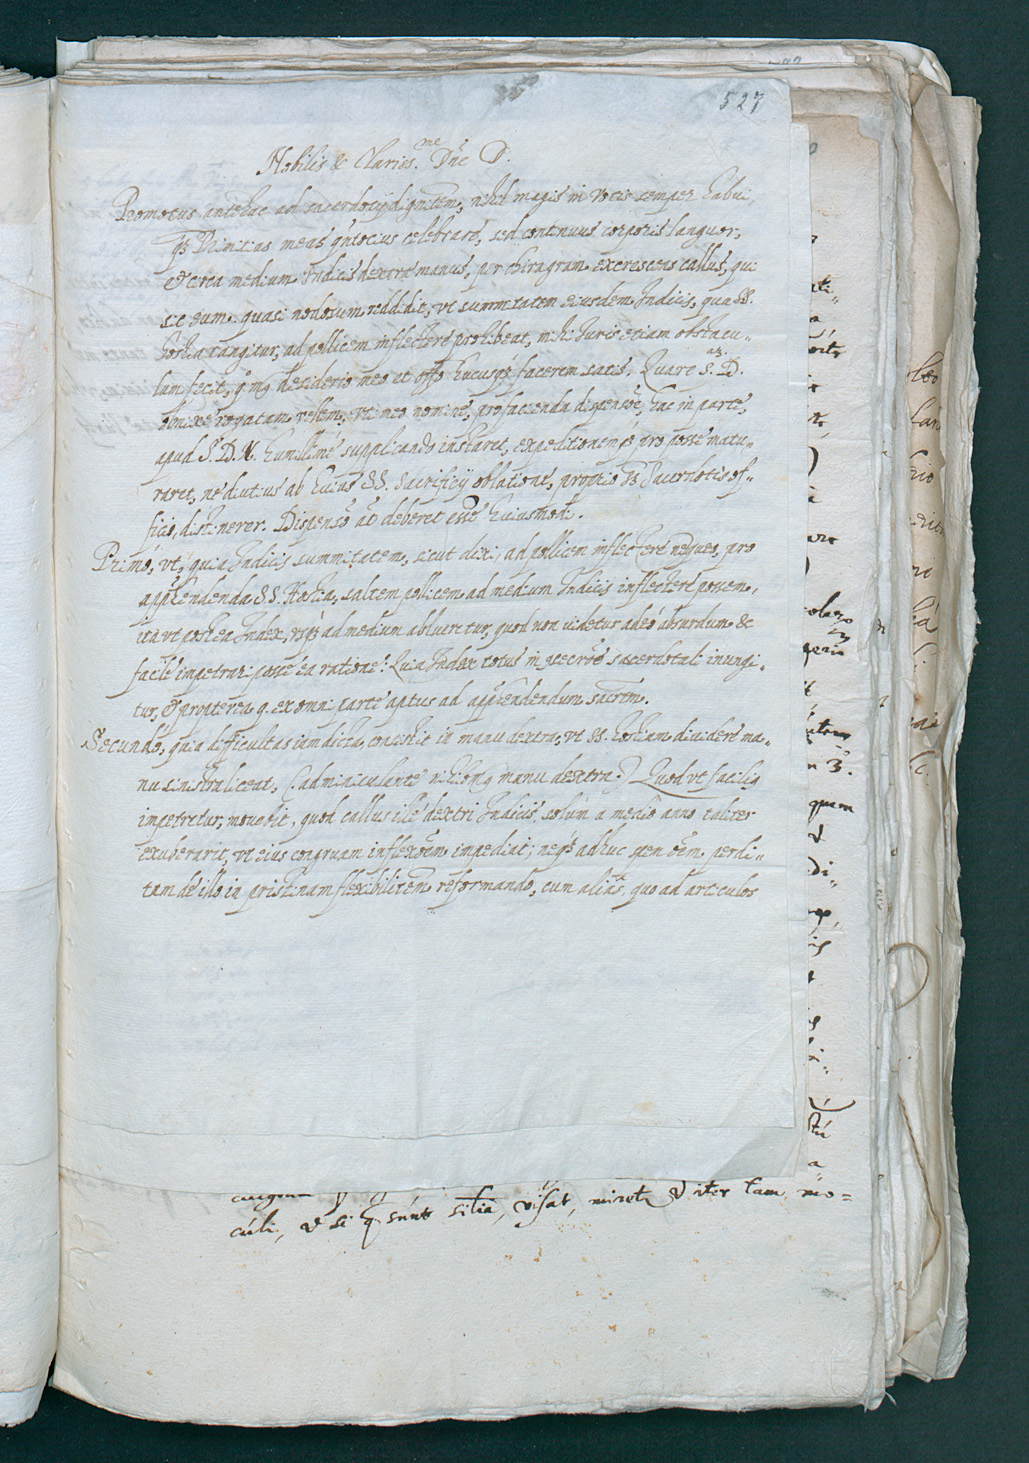 527
Nobilis & Clariss.me Dñe D.
Promotus antehac ad sacerdotij dignitem, nihil magis in votis semper habui,
q̃ Primitias meas q̃ntocius celebrare, sed continuus corporis languor,
et circa medium Indicis dextræ manus, per chiragram excrescens callus, qui
sic eum quasi nodosum reddidit, vt summitatem eiusdem Indicis, qua SS.
hostia tangitur, ad pollicem inflectere prohibeat, mihi Iuris etiam obstacu-
lum fecit, q̊ mĩ desiderio meo et offo hucusq; facerem satis. Quare S. D.
obnixe rogatam vellem, vt meo nomine, pro facienda dispensõe, hac in parte,
apud S. D. N. humillime supplicando instaret, expeditionemq; pro posse matu-
raret, ne diutius ab huius SS. Sacrificij oblatione, proprio Sacerdotis of-
ficio, distinerer. Dispenso at̃ deberet esse huiusmodi.
Primo, vt, quia Indicis summitatem, sicut dixi, ad pollicem inflectere nequeo, pro
apphendenda SS. Hostia, saltem pollicem ad medium Indicis inflectere possem,
ita vt postea Index, vsq; ad medium ablueretur, quod non videtur adeo absurdum &
facile impetrari posse ea ratione: Quia Index totus in sacerdotali inungi-
tur, & propterea q. ex omni parte aptus ad apphendendum sacrm.
Secundo, quia difficultas iam dicta, consistit in manu dextra, vt SS. hostiam dividere ma-
nu sinistra liceat, (adminiculante nihilomiq manu dextra.) Quod vt facilig
impetretur, movebit, quod callus ille dextri Indicis, solum a medio anno taliter
exuberarit, vt eius congruam inflexõem impediat; neq; adhuc spem oẽm perdi-
tam de illo in pristinam flexibilitem reformando, cum alias quo ad articulos
culi, & si q sunt sitia, visat, miretr & iter tam mo=